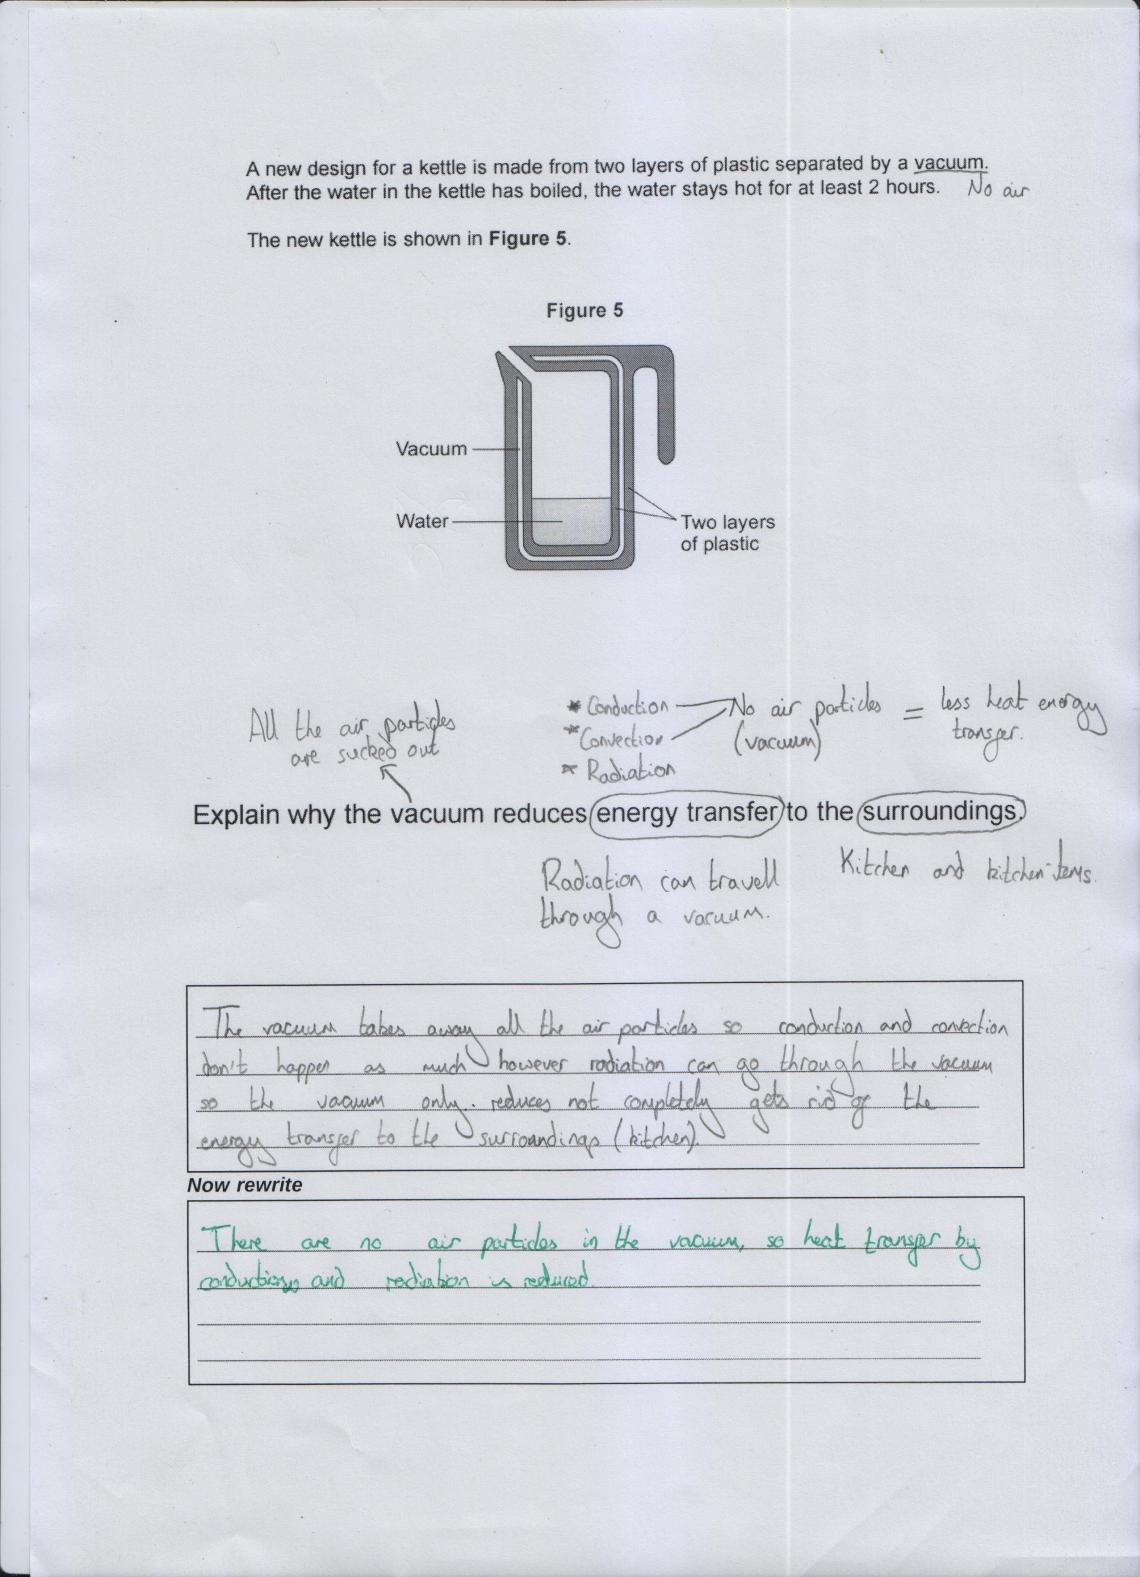 A new design for a kettle is made from two layers of plastic separated by a vacuum.
After the water in the kettle has boiled, the water stays hot for at least 2 hours. No air
The new kettle is shown in Figure 5.
Figure 5
Vacuum
Water
Two layers
of plastic
All the air particles
are sucked out
* Conduction
* Convection
* Radiation
No air particles
(vacuum)
= less heat energy
transfer.
Explain why the vacuum reduces energy transfer to the surroundings.
Radiation can travell
through a vacuum.
Kitchen and kitchen items.
The vacuum takes away all the air particles so conduction and convection
don't happen as much however radiation can go through the vacuum
so the vacuum only reduces not completely gets rid of the
energy transfer to the surroundings (kitchen).
Now rewrite
There are no air particles in the vacuum, so heat transfer by
and radiation is reduced.